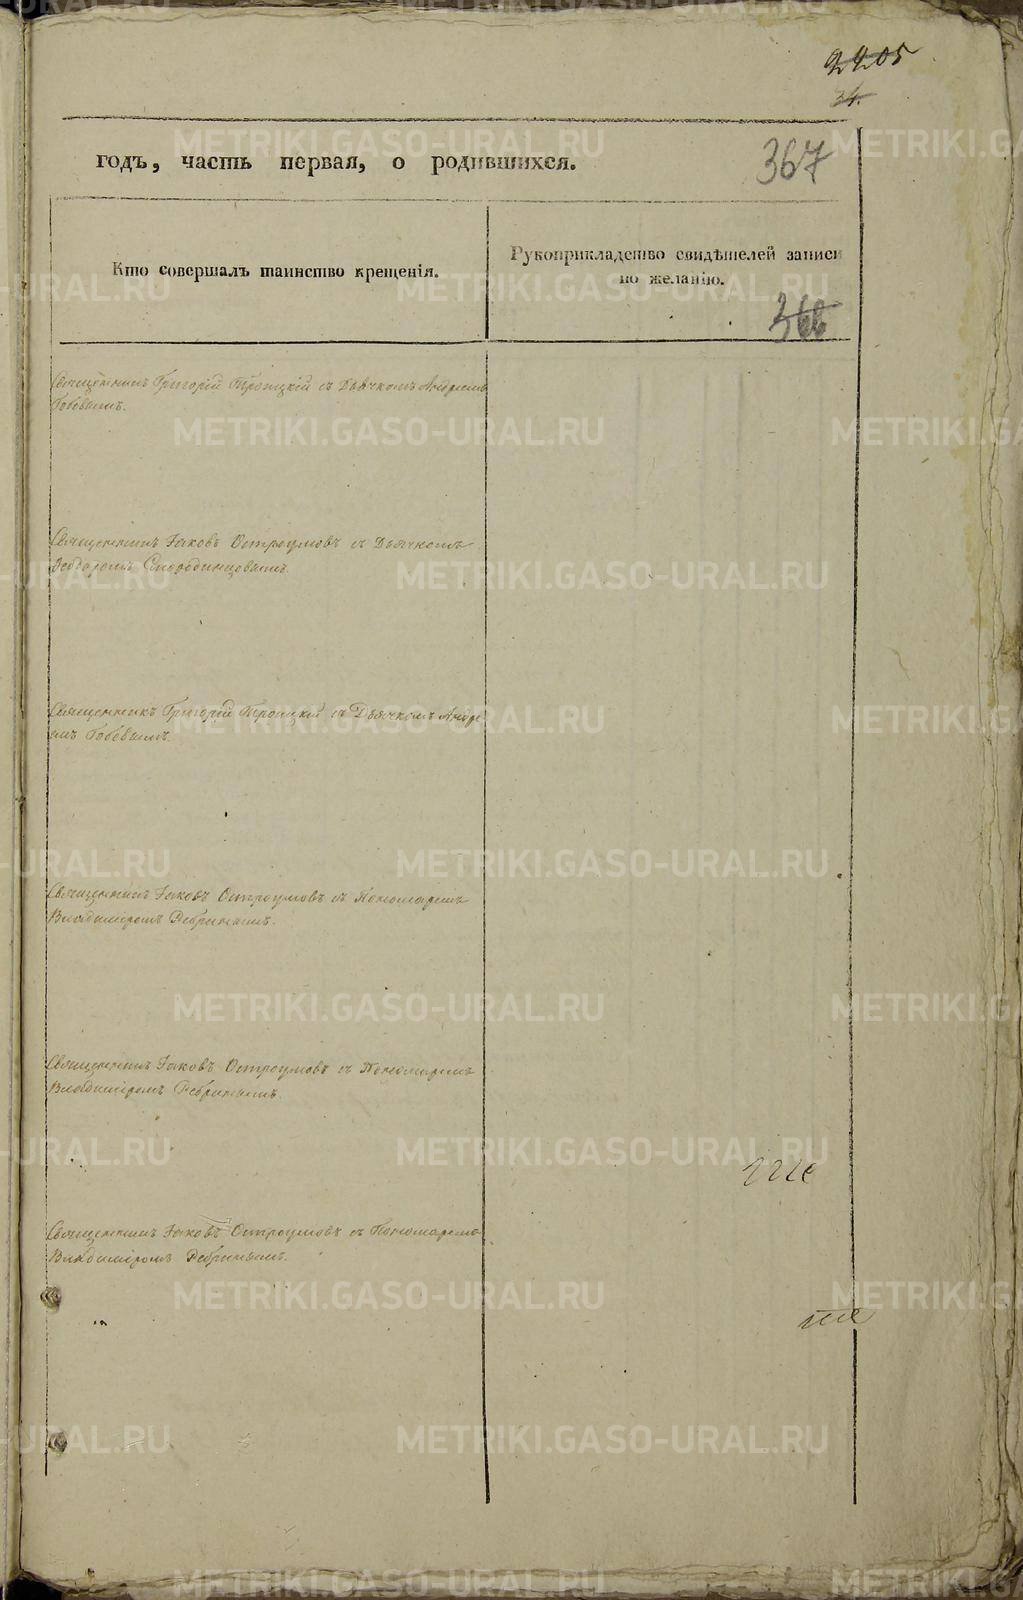 2205
34.
годъ, часть первая, о родившихся.
367
Кто совершалъ таинство крещенія.
Рукоприкладство свидѣтелей записи
по желанію.
366
Священникъ Григорій Троицкій съ Дьячкомъ Андреемъ
Священникъ Іаковъ Остроумовъ съ Дьячкомъ
Ѳеодоромъ
Священникъ Григорій Троицкій съ Дьячкомъ Андре-
емъ
Священникъ Іаковъ Остроумовъ съ Пономаремъ
Владиміромъ Ребринымъ.
Священникъ Іаковъ Остроумовъ съ Пономаремъ
Владиміромъ Ребринымъ.
Священникъ Іаковъ Остроумовъ съ Пономаремъ
Владиміромъ Ребринымъ.
METRIKI.GASO-URAL.RU